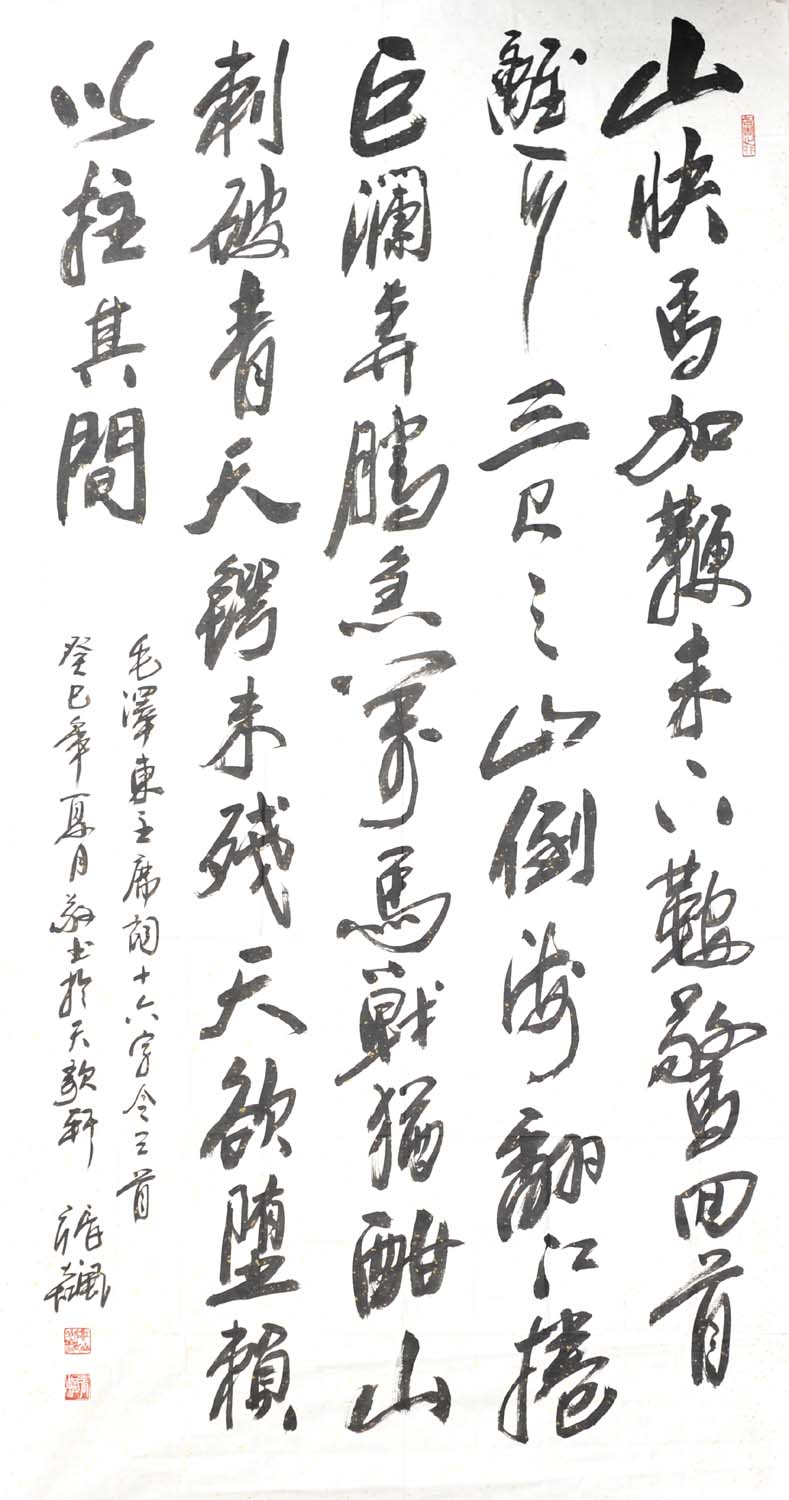 山快馬加鞭未下鞍驚回首
離天三尺三山倒海翻江捲
巨瀾奔騰急萬馬戰猶酣山
刺破青天鍔未残天欲堕賴
以拄其間
毛澤東主席詞十六字令三首
癸巳年夏月敬书於天歌軒